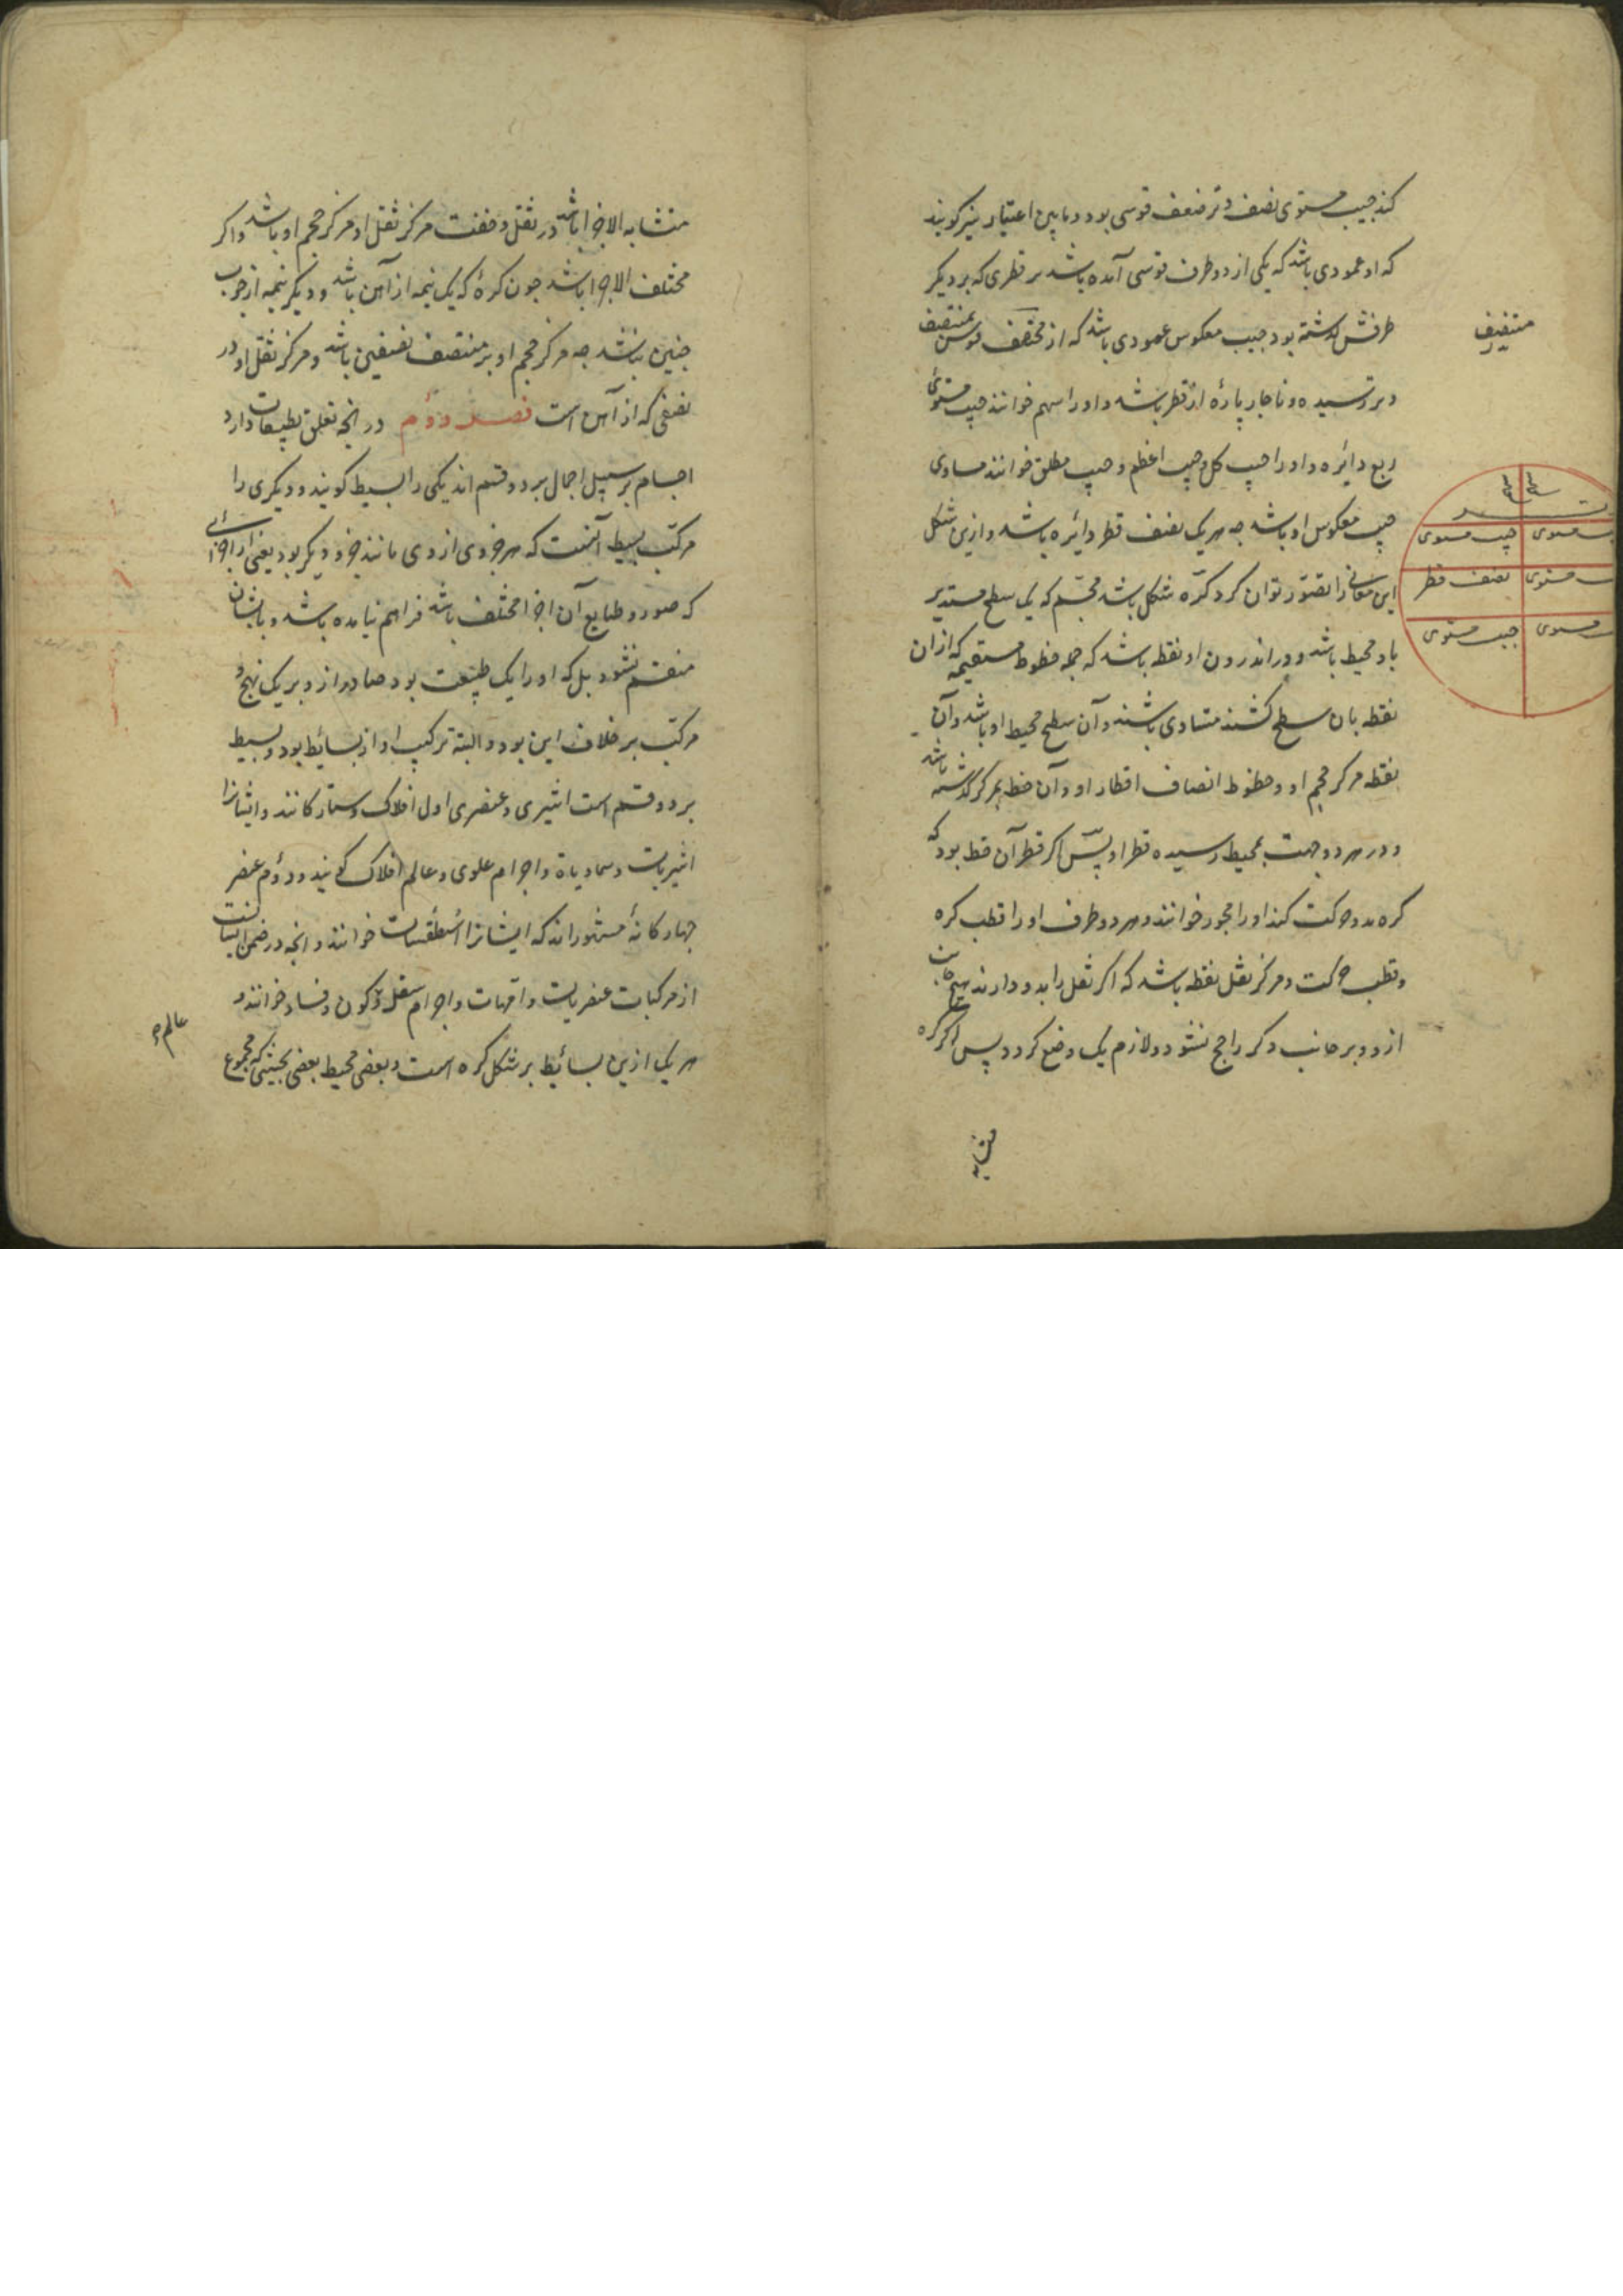 کند جیب مستوی نصف وتر ضعف قوسی بود و باین اعتبار نیز کویند
که او عمودی باشد که یکی از دو طرف قوسی آمده باشد بر قطری که بر دیکر
طرفش کذشته بود و جیب معکوس عمودی باشد که از منتصف قوس بمنتصف
منتصف
وتر رسیده و ناچار پارهٔ از قطر باشد و او را سهم خوانند جیب مستوئ
ربع دائره و او را جیب کل و جیب اعظم و جیب مطلق خوانند مساوی
جیب معکوس او باشد چه هر یک نصف قطر دائره باشد و ازین شکل
این معانی را تصوّر توان کرد کرّه شکل باشد مجسّم که یک سطح مستدیر
باو محیط باشد و در اندرون او نقطه باشد که جمله خطوط مستقیمه که از ان
نقطه بان سطح کشند متساوی باشند و آن سطح محیط او باشد و آن
نقطه مرکز حجم او و خطوط انصاف اقطار او و آن خط بمرکز کذشته باشد
و در هر دو جهت بمحیط رسیده قطر او پس اکر قطر آن خط بود که
کره بدو حرکت کند او را محور خوانند و هر دو طرف او را قطب کره
و قطب حرکت و مرکز ثقل نقطه باشد که اکر ثقل را بدو دارند هیچ جانب
ازو و بر جانب دکر راجح نشود و لازم یک وضع کردد پس اکر کره
متشابه
وتر
جیب مستوی
جیب مستوی
نصف قطر
مستوی
جیب مستوی
مستوی
متشابه الاجزا باشد در ثقل و خفت مرکز ثقل او مرکز حجم او باشد و اکر
مختلف الاجزا باشد چون کرهٔ که یک نیمه از آهن باشد و دیکر نیمه از چوب
چنین نباشد چه مرکز حجم او بر منتصف نصفین باشد و مرکز ثقل او در
نصفی که از آهن است فصل دوم در انچه تعلق بطبیعات دارد
اجسام بر سبیل اجمال بر دو قسم اند یکی را بسیط کویند و دیکری را
مرکّب بسیط آنست که هر جزوی از وی مانند جزو دیکر بود یعنی از اجزائی
که صور و طبایع آن اجزا مختلف باشد فراهم نیامده باشد و باشان
منقسم نشود بل که او را یک طبیعت بود صادر ازو بر یک نهج و
مرکّب بر خلاف این بود و البته ترکیب او از بسائط بود و بسیط
بر دو قسم است اثیری و عنصری اول افلاک و ستارکانند و ایشانرا
اثیریات و سماویات و اجرام علوی و عالم افلاک کویند و دوم عنصر
چهارکانهٔ مشهوراند که ایشانرا اسطقسات خوانند و انچه در ضمن ایشانست
از مرکبات عنصریات و امّهات و اجرام سفلی و کون و فساد خوانند و
عالم
هر یک ازین بسائط بر شکل کره است و بعضی محیط بعضی بحیثیتی که مجموع